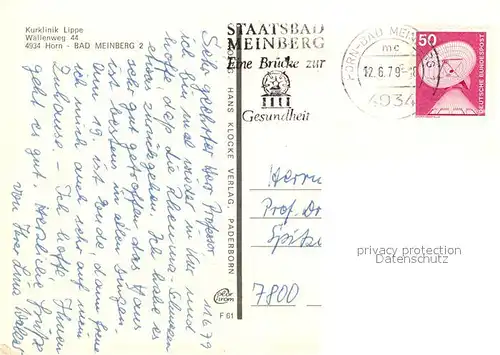 Kurklinik Lippe
Wällenweg 44
4934 Horn - BAD MEINBERG 2
STAATSBAD
MEINBERG
Eine Brücke zur
Gesundheit
HORN-BAD MEINBERG
mc
12.6.79
4934
50
DEUTSCHE BUNDESPOST
HANS KLOCKE VERLAG, PADERBORN
F 61
11.6.79
Sehr geehrter Herr Professor,
ich bin mal wieder in Kur und
hoffe, daß die Rheuma-Schmerzen
etwas zurückgehen. Ich habe es
sehr gut getroffen, das Haus
ist bestens in allen Dingen.
Am 19. ist Ende, dann freue
ich mich auch sehr auf mein
Zuhause. - Ich hoffe Ihnen
geht es gut. Herzliche Grüße
von Ihrer
Herrn
Prof. Dr
Spitz
7800
privacy protection
Datenschutz